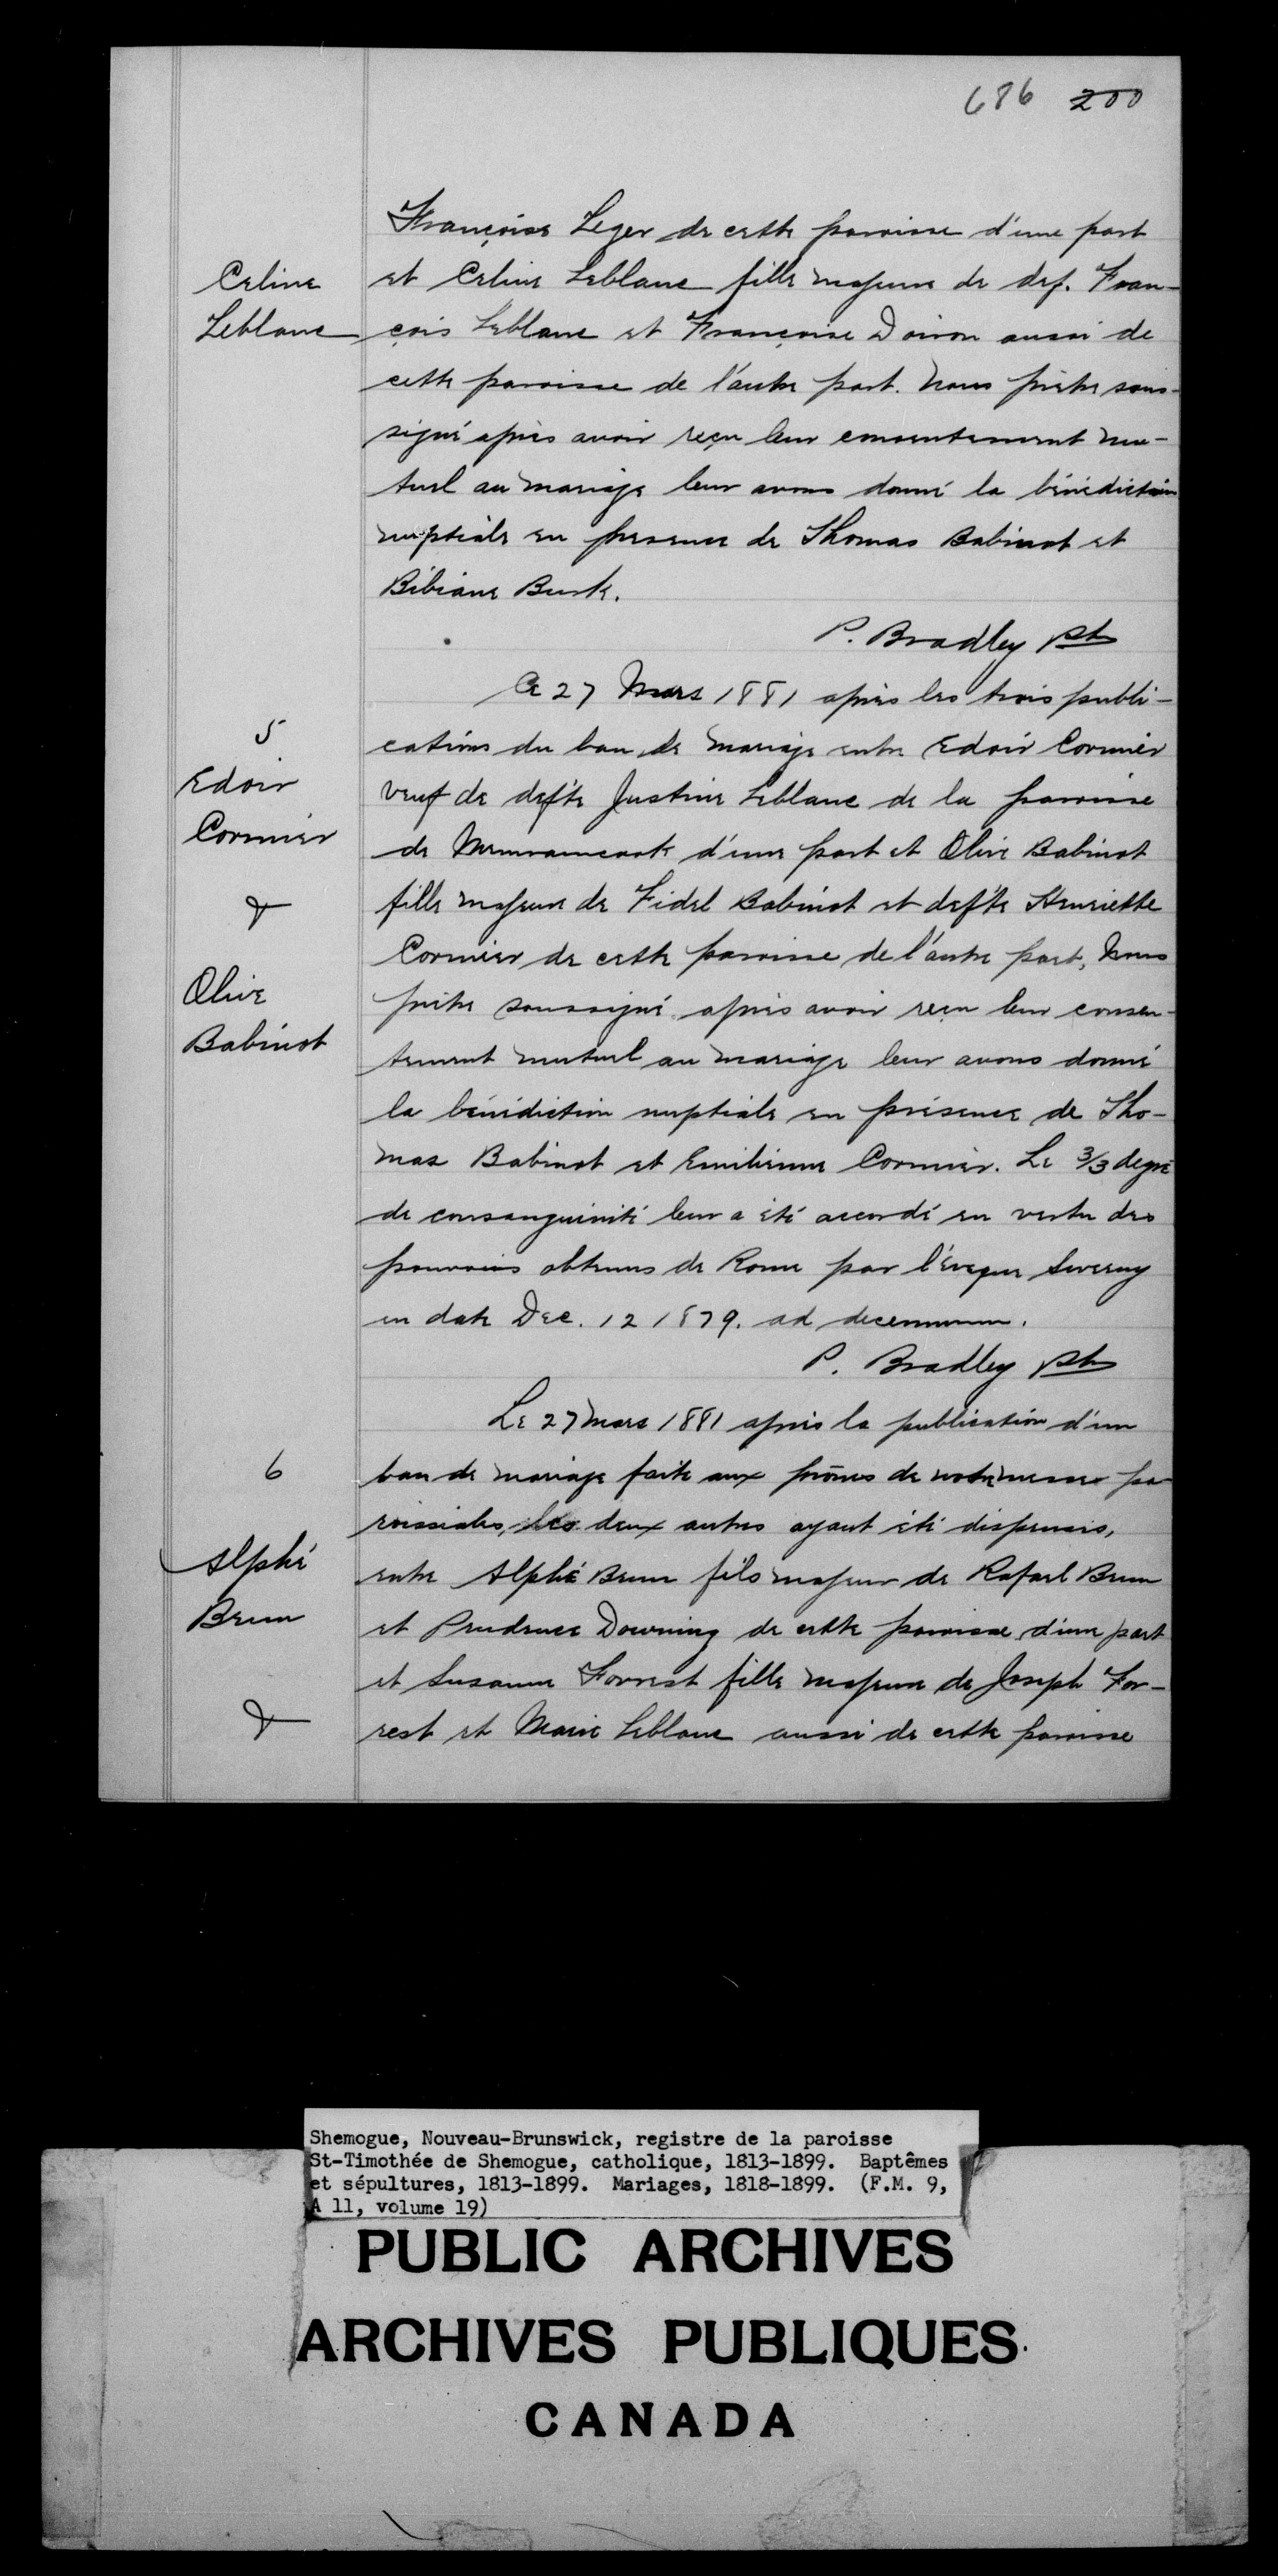 686 200
Françoise Leger de cette paroisse d'une part
Celine
et Celine Leblanc fille majeure de def. Fran-
Leblanc
çois Leblanc et Françoise Doiron aussi de
cette paroisse de l'autre part. Nous prêtre sous-
signé après avoir reçu leur consentement mu-
tuel au mariage leur avons donné la bénédiction
nuptiale en presence de Thomas Babinot et
Bibiane Burk.
P. Bradley Ptr
Ce 27 Mars 1881 après les trois publi-
5
cations du ban de mariage entre Edoir Cormier
Edoir
veuf de defte Justine Leblanc de la paroisse
Cormier
de Memramcook d'une part et Olive Babinot
&
fille majeure de Fidel Babinot et defte Henriette
Cormier de cette paroisse de l'autre part, Nous
Olive
prêtre soussigné après avoir reçu leur consen-
Babinot
tement mutuel au mariage leur avons donné
la bénédiction nuptiale en présence de Tho-
mas Babinot et Emilienne Cormier. Le 3/3 degré
de consanguinité leur a été accordé en vertu des
pouvoirs obtenus de Rome par l'évêque Sweeny
en date Dec. 12 1879. ad decennium.
P. Bradley Ptr
Le 27 mars 1881 après la publication d'un
6
ban de mariage faite aux prônes de notre messe pa
roissiales, les deux autres ayant été dispensés,
Alphé
entre Alphé Brun fils majeur de Rafael Brun
Brun
et Prudence Downing de cette paroisse d'une part
et Susanne Forrest fille majeure de Joseph For-
&
rest et Marie Leblanc aussi de cette paroisse
Shemogue, Nouveau-Brunswick, registre de la paroisse
St-Timothée de Shemogue, catholique, 1813-1899. Baptêmes
et sépultures, 1813-1899. Mariages, 1818-1899. (F.M. 9,
A 11, volume 19)
PUBLIC ARCHIVES
ARCHIVES PUBLIQUES
CANADA